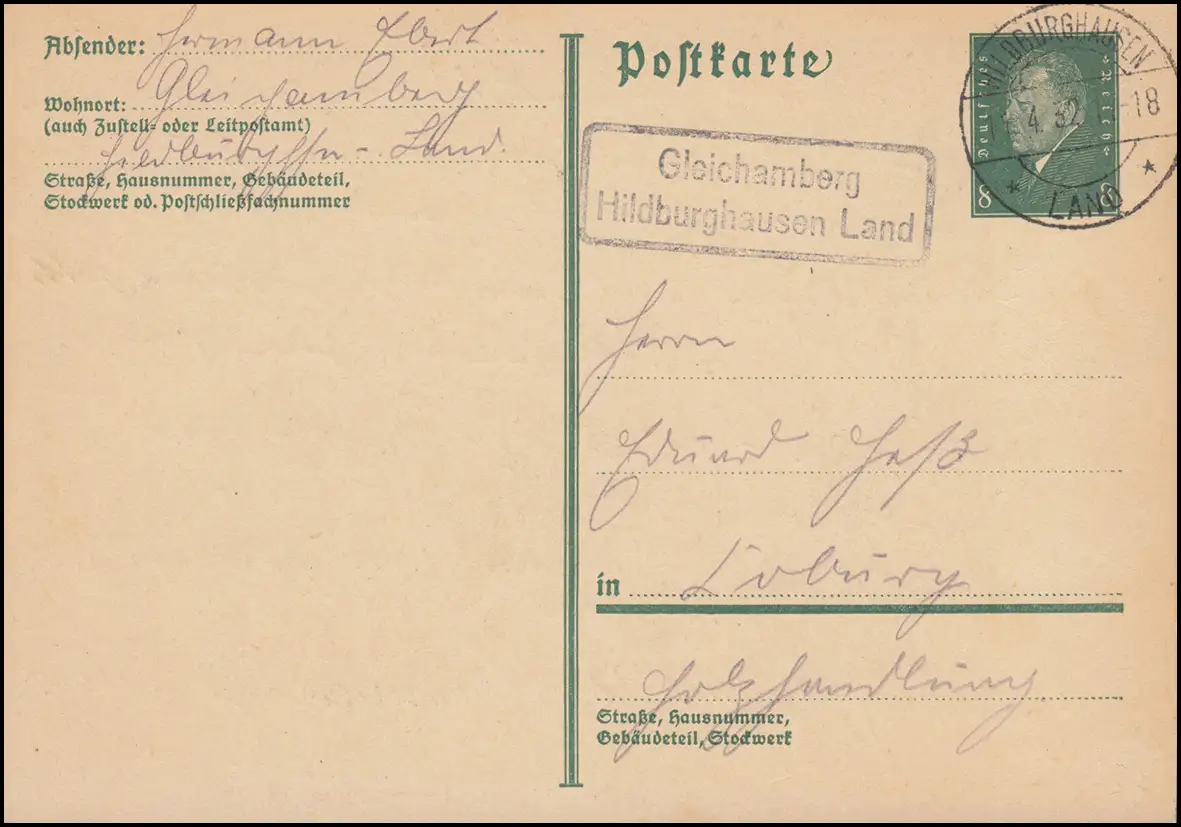 Absender: Hermann Ebert
Wohnort: Gleichamberg
(auch Zustell- oder Leitpostamt)
Hildburghsn - Land.
Straße, Hausnummer, Gebäudeteil,
Stockwerk od. Postschließfachnummer
Postkarte
Deutsches Reich
8 8
HILDBURGHAUSEN
4.32 -18
LAND
Gleichamberg
Hildburghausen Land
Herrn
Eduard Heß
in Coburg
Holzhandlung
Straße, Hausnummer,
Gebäudeteil, Stockwerk